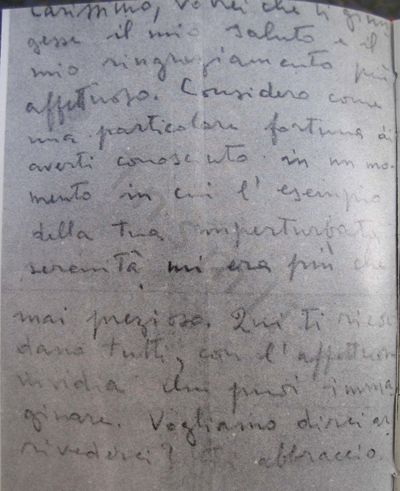 Carissimo, vorrei che ti giun
gesse il mio saluto e il
mio ringraziamento più
affettuoso. Considero come
una particolare fortuna di
averti conosciuto in un mo-
mento in cui l'esempio
della tua imperturbata
serenità mi era più che
mai prezioso. Qui ti ricor
dano tutti, con l'affettuosa
invidia che puoi imma
ginare. Vogliamo dirci ar
rivederci? Ti abbraccio